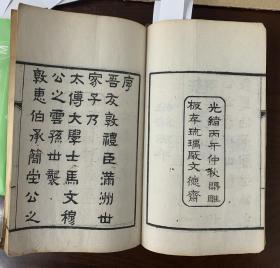 光緒丙午仲秋開雕
板存琉璃厰文德齋
序
吾友敦禮臣滿洲世
家子乃
太傅大學士馬文穆
公之雲孫世襲
敦惠伯承簡堂公之